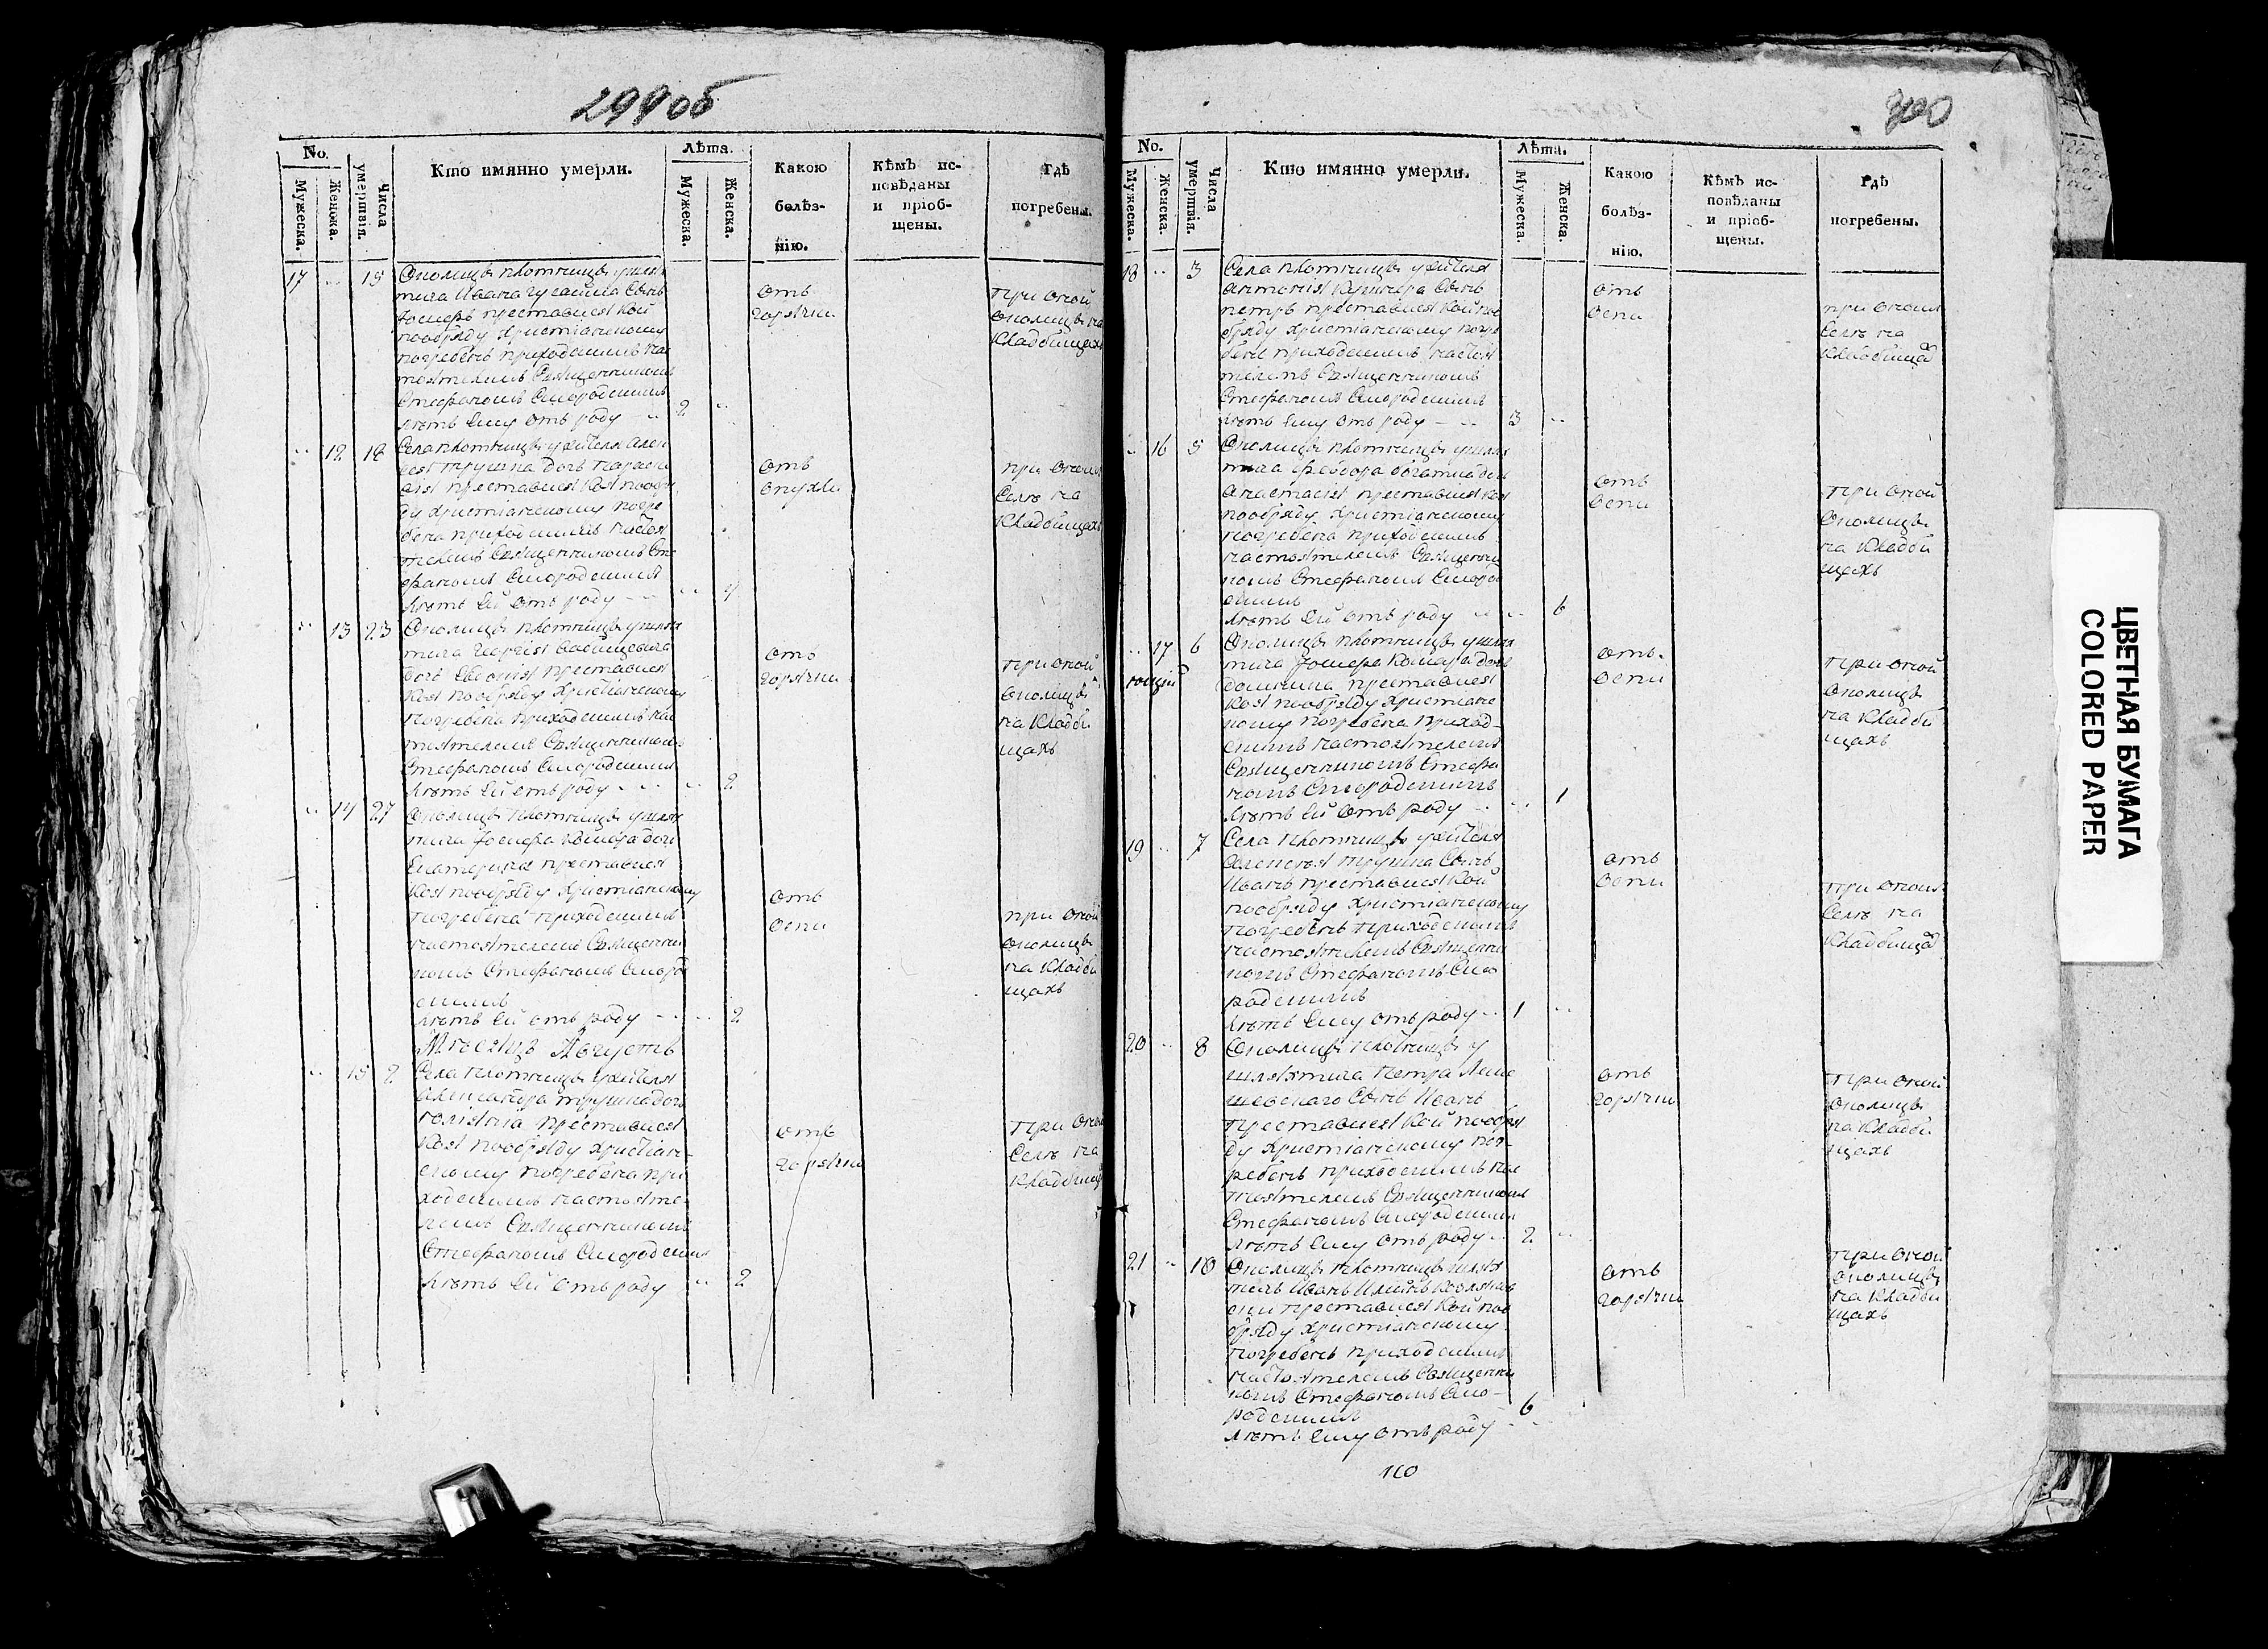 299об
No. лѣта.
Мужеска. Женска. Числа умертвія. Кто имянно умерли. Мужеска. Женска. Какою болѣз-нію. Кѣмъ ис-повѣданы и пріоб-щены. Гдѣ погребены.
17 15 Околицы плотницы шлях
тича Ивана сынъ
Іосифъ преставися кой
пообряду християнскому
погребенъ приходскимъ нас
тоятелемъ Священникомъ
Стефаномъ Смородскимъ
лѣтъ ему отъ роду 2
отъ
горячки
при оной
околицы на
кладбищахъ
12 18 Села плотницы жителя Алек
сея Трушка дочь Параск
преставися коя пообря
ду християнскому погре
бена приходскимъ настоя
телемъ Священникомъ Сте
фаномъ Смородскимъ
лѣтъ ей отъ роду 4
отъ
опухли
при ономъ
Селѣ на
кладбищахъ
13 23 Околицы плотницы шлях
тича Георгія
дочь преставися
коя пообряду християнскому
погребена приходскимъ нас
тоятелемъ Священникомъ
Стефаномъ Смородскимъ
лѣтъ ей отъ роду 2
отъ
горячки
при оной
околицы
на кладби
щахъ
14 27 Околицы плотницы шлях
тича Іосифа Комара дочь
Екатерина преставися
коя пообряду християнскому
погребена приходскимъ
настоятелемъ Священни
комъ Стефаномъ Смород
скимъ
лѣтъ ей отъ роду 2
отъ
оспи
при оной
околицы
на кладби
щахъ
Мѣсяцъ Августъ
15 2 Села плотницы жителя
Александра Трушка дочь
преставися
коя пообряду християн-
скому погребена при
ходскимъ настояте-
лемъ Священникомъ
Стефаномъ Смородским
лѣтъ ей отъ роду 2
отъ
горячки
при оном
Селѣ на
кладбищ
300
No. лѣта.
Мужеска. Женска. Числа умертвія. Кто имянно умерли. Мужеска. Женска. Какою болѣз-нію. Кѣмъ ис-повѣданы и пріоб-щены. Гдѣ погребены.
18 3 Села плотницы жителя
Антонія сынъ
петръ преставися кой поо
бряду християнскому погре
бенъ приходскимъ настоя
телемъ Священникомъ
Стефаномъ Смородскимъ
лѣтъ ему отъ роду 3
отъ
оспи
при ономъ
Селѣ на
кладбищах
16 5 Околицы плотницы шлях
тича Феодора дочь
Анастасія преставися коя
пообряду християнскому
погребена приходскимъ
настоятелемъ Священни
комъ Стефаномъ Смород
скимъ
лѣтъ ей отъ роду 6
отъ
оспи
при оной
Околицы
на кладби
щахъ
17 6 Околицы плотницы шлях
тича Іосифа Комара дочь
преставися
коя пообряду християнс
кому погребена приход-
скимъ настоятелемъ
Священникомъ Стефа
номъ Смородскимъ
лѣтъ ей отъ роду 1
отъ
оспи
при оной
Околицы
на кладби
щахъ
19 7 Села плотницы жителя
Алексея Трушка сынъ
Иванъ преставися кой
пообряду християнскому
погребенъ приходскимъ
настоятелемъ Священни
комъ Стефаномъ Смо
родскимъ
лѣтъ ему отъ роду 1
отъ
оспи
при ономъ
Селѣ на
кладбищах
20 8 Околицы плотницы
шляхтича Петра
сынъ Иванъ
преставися кой пообря
ду християнскому пог-
ребенъ приходскимъ нас
тоятелемъ Священникомъ
Стефаномъ Смородскимъ
лѣтъ ему отъ роду 2
отъ
горячки
при оной
околицы
на кладби
щахъ
21 10 Околицы плотницы шлях
тичъ Иванъ
преставися кой поо
бряду християнскому
погребенъ приходскимъ
настоятелемъ Священни
комъ Стефаномъ Смо-
родскимъ
лѣтъ ему отъ роду 6
отъ
горячки
при оной
околицы
на кладби
щахъ
ЦВЕТНАЯ БУМАГА
COLORED PAPER